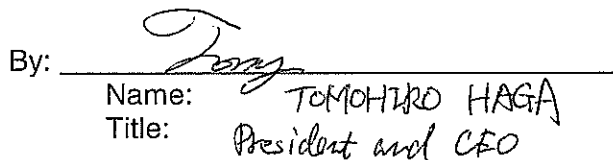 By: Tony
Name: TOMOHIRO HAGA
Title: President and CEO